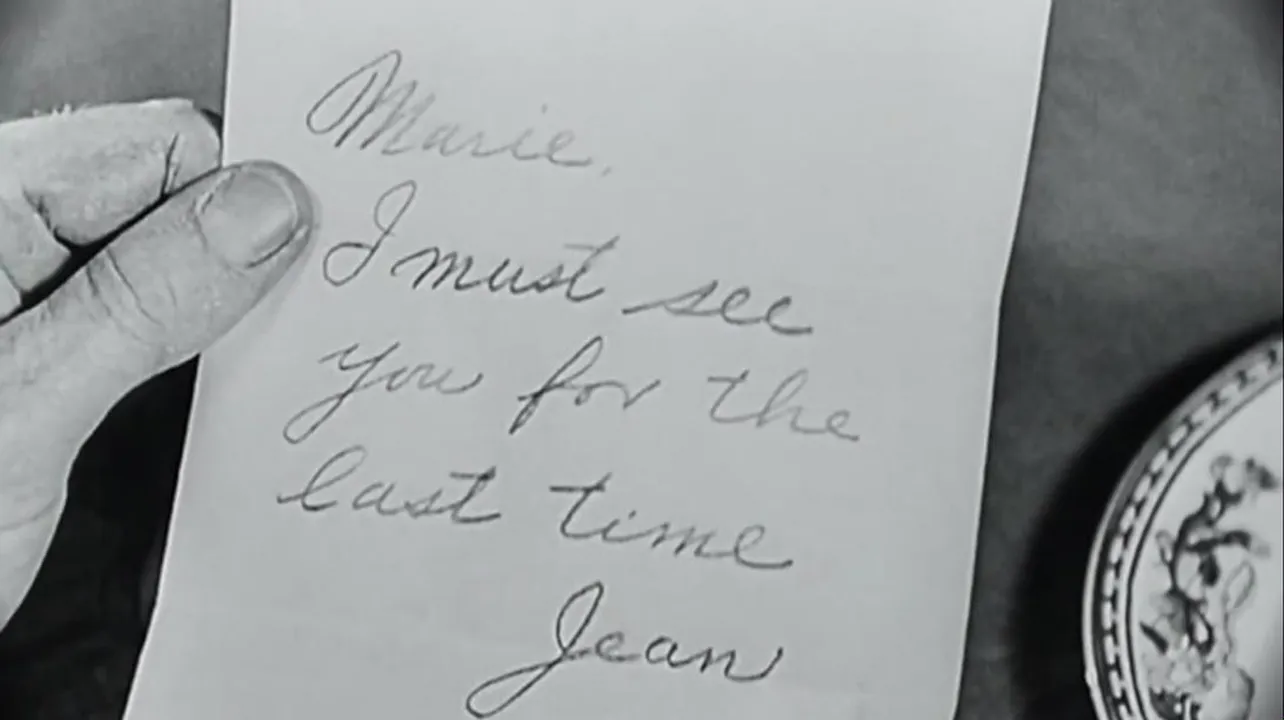 Marie,
I must see
you for the
last time
Jean